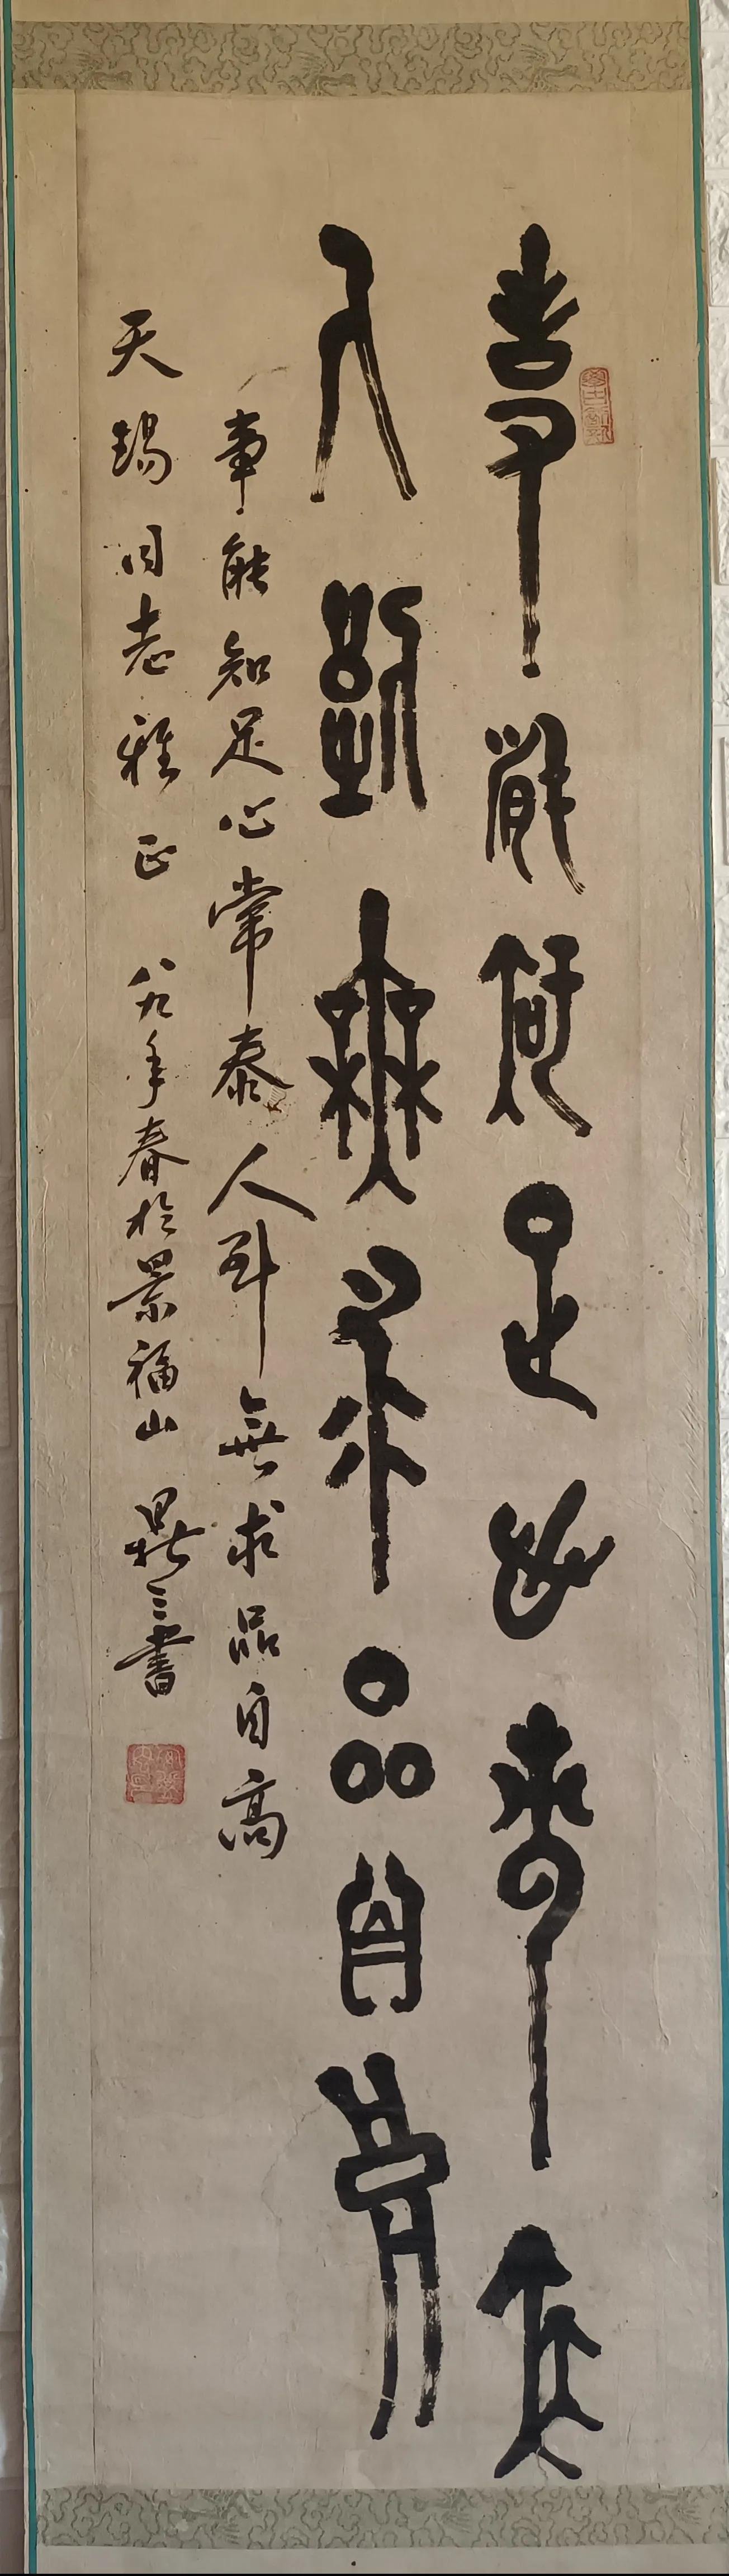 事能知足心常泰
人到無求品自高
事能知足心常泰人到無求品自高
天錫同志雅正 八九年春於景福山 鼎三書